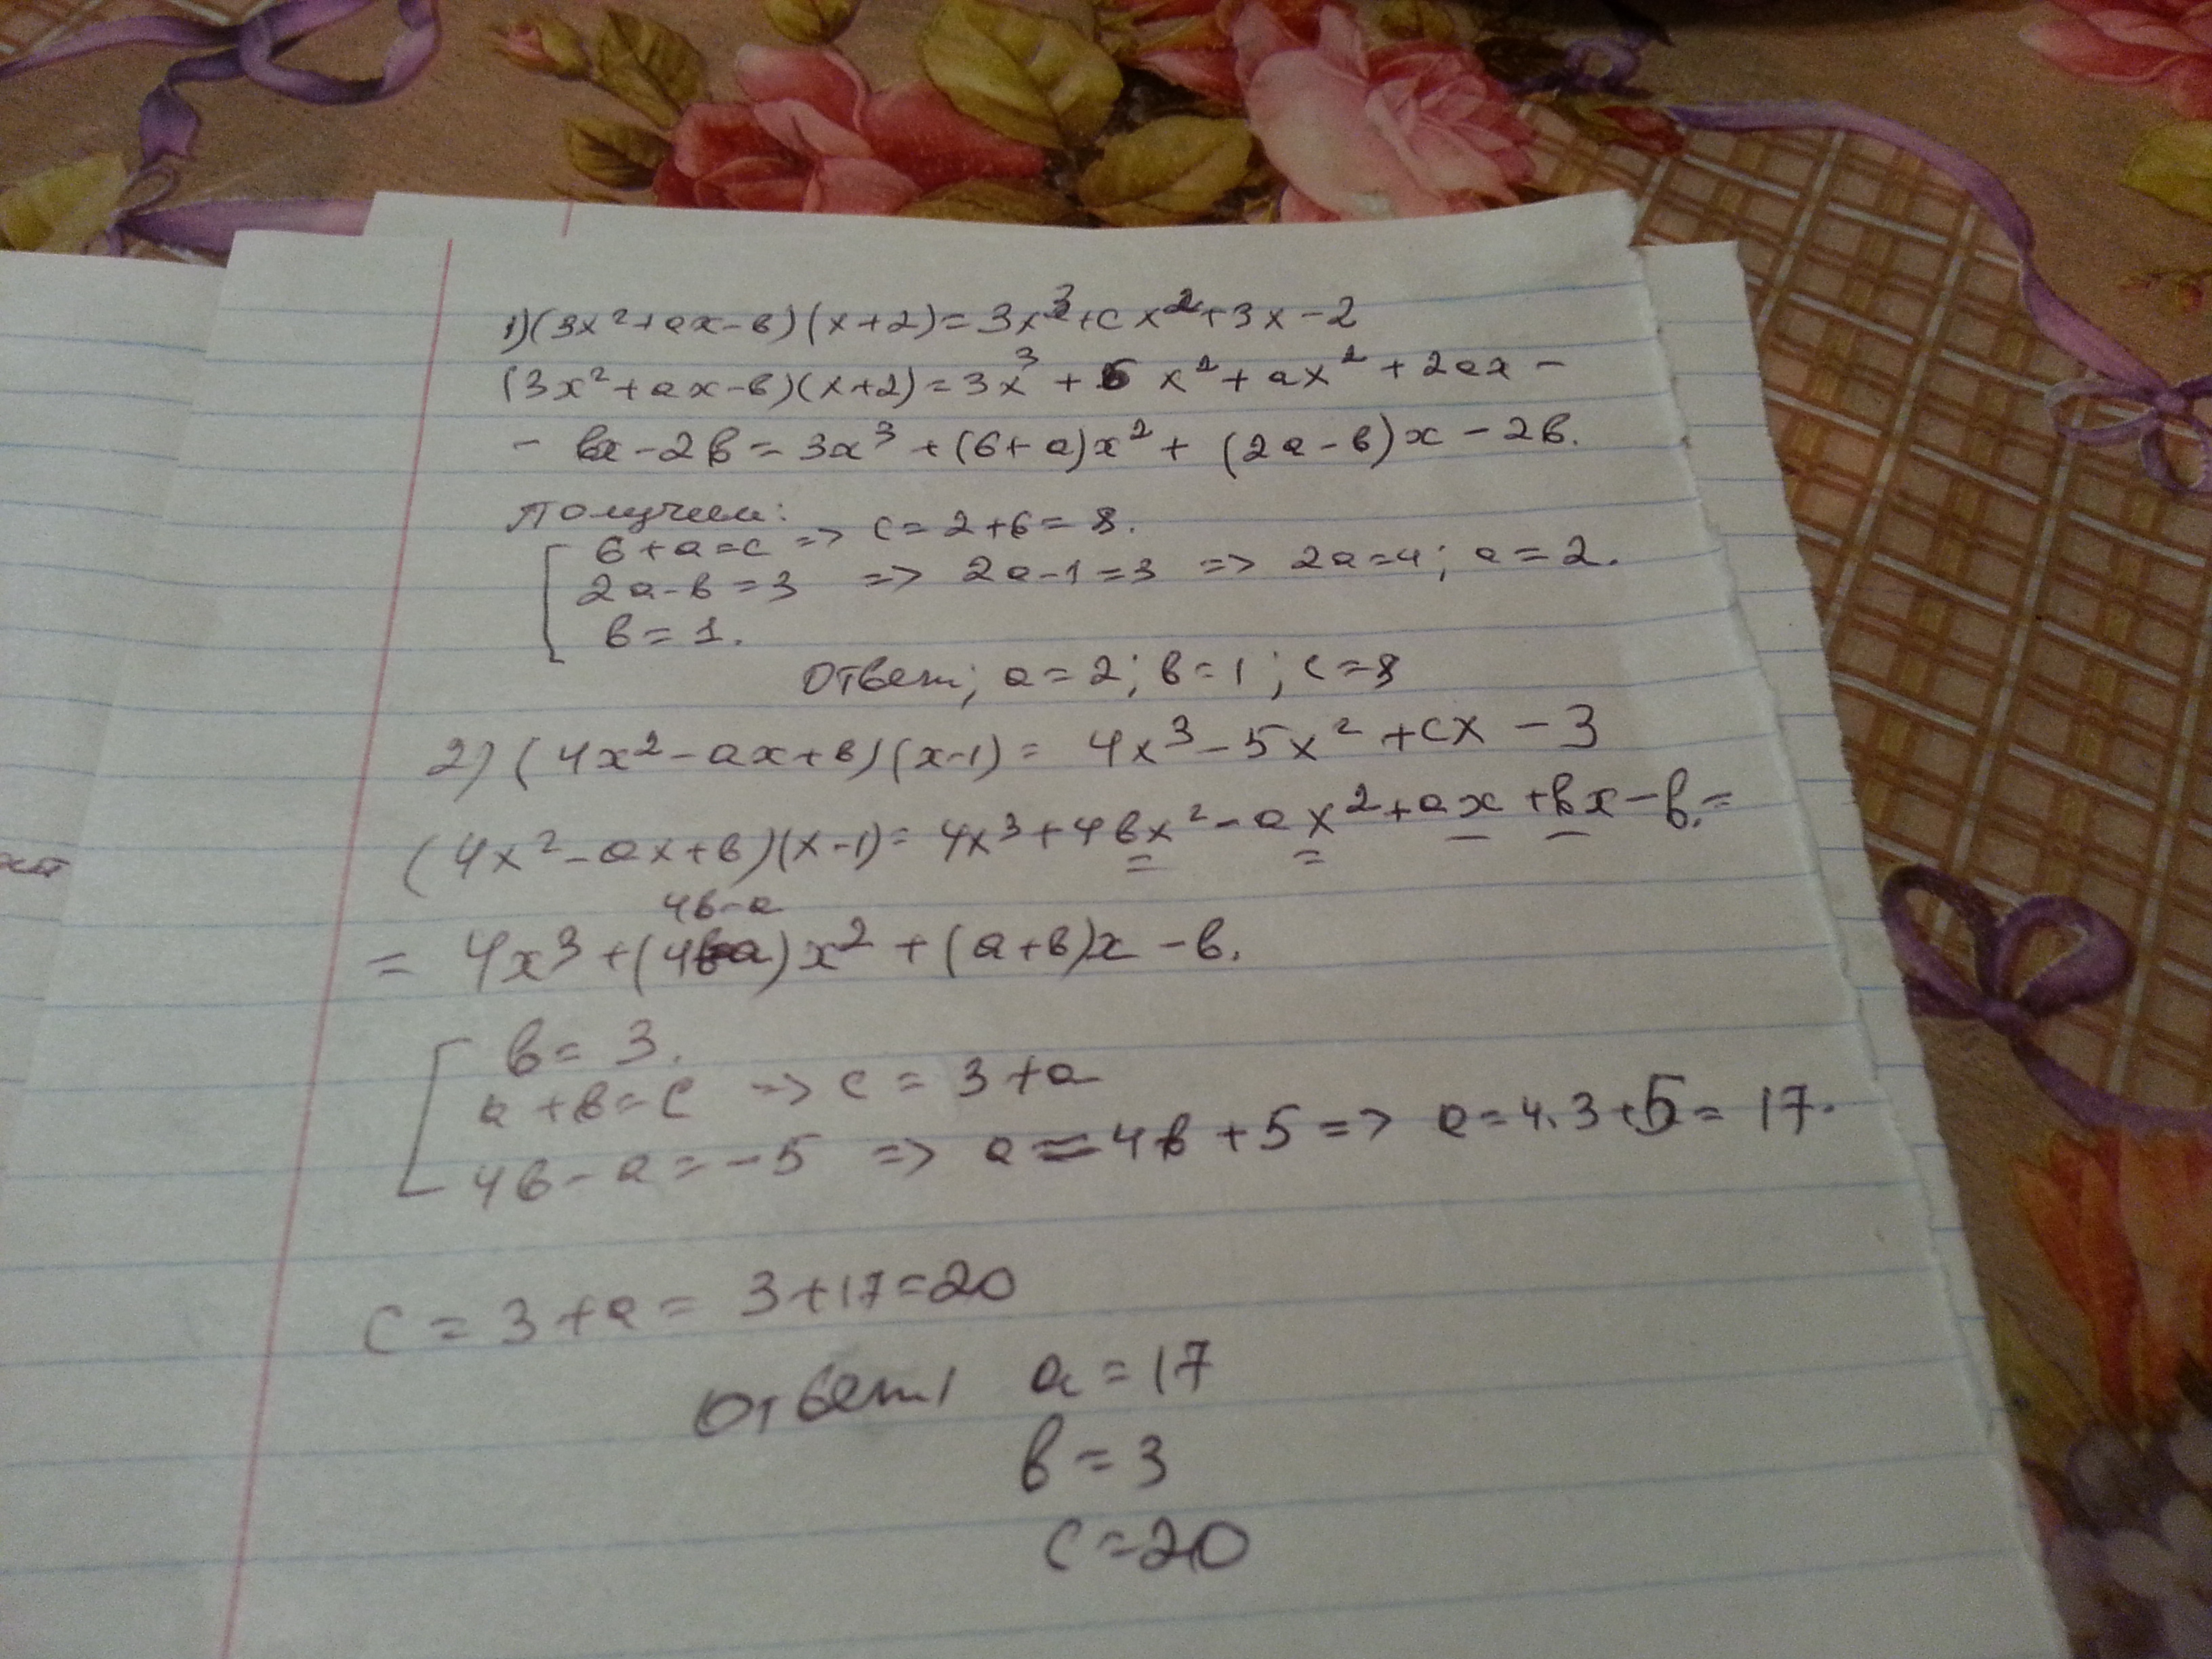 1) (3x² + ax - в) (x + 2) = 3x³ + cx² + 3x - 2
(3x² + ax - в)(x + 2) = 3x³ + 6 x² + ax² + 2ax -
- вx - 2в = 3x³ + (6 + a)x² + (2a - в)x - 2в.
Получим:
6 + a = c => c = 2 + 6 = 8.
2a - в = 3 => 2a - 1 = 3 => 2a = 4; a = 2.
в = 1.
Ответ; a = 2; в = 1; c = 8
2) (4x² - ax + в)(x - 1) = 4x³ - 5x² + cx - 3
(4x² - ax + в)(x - 1) = 4x³ + 4вx² - ax² + ax + вx - в. =
4в - a
= 4x³ + (4в-a)x² + (a + в)x - в.
в = 3.
a + в = c => c = 3 + a
4в - a = -5 => a = 4в + 5 => a = 4.3 + 5 = 17.
c = 3 + a = 3 + 17 = 20
Ответ a = 17
в = 3
c = 20